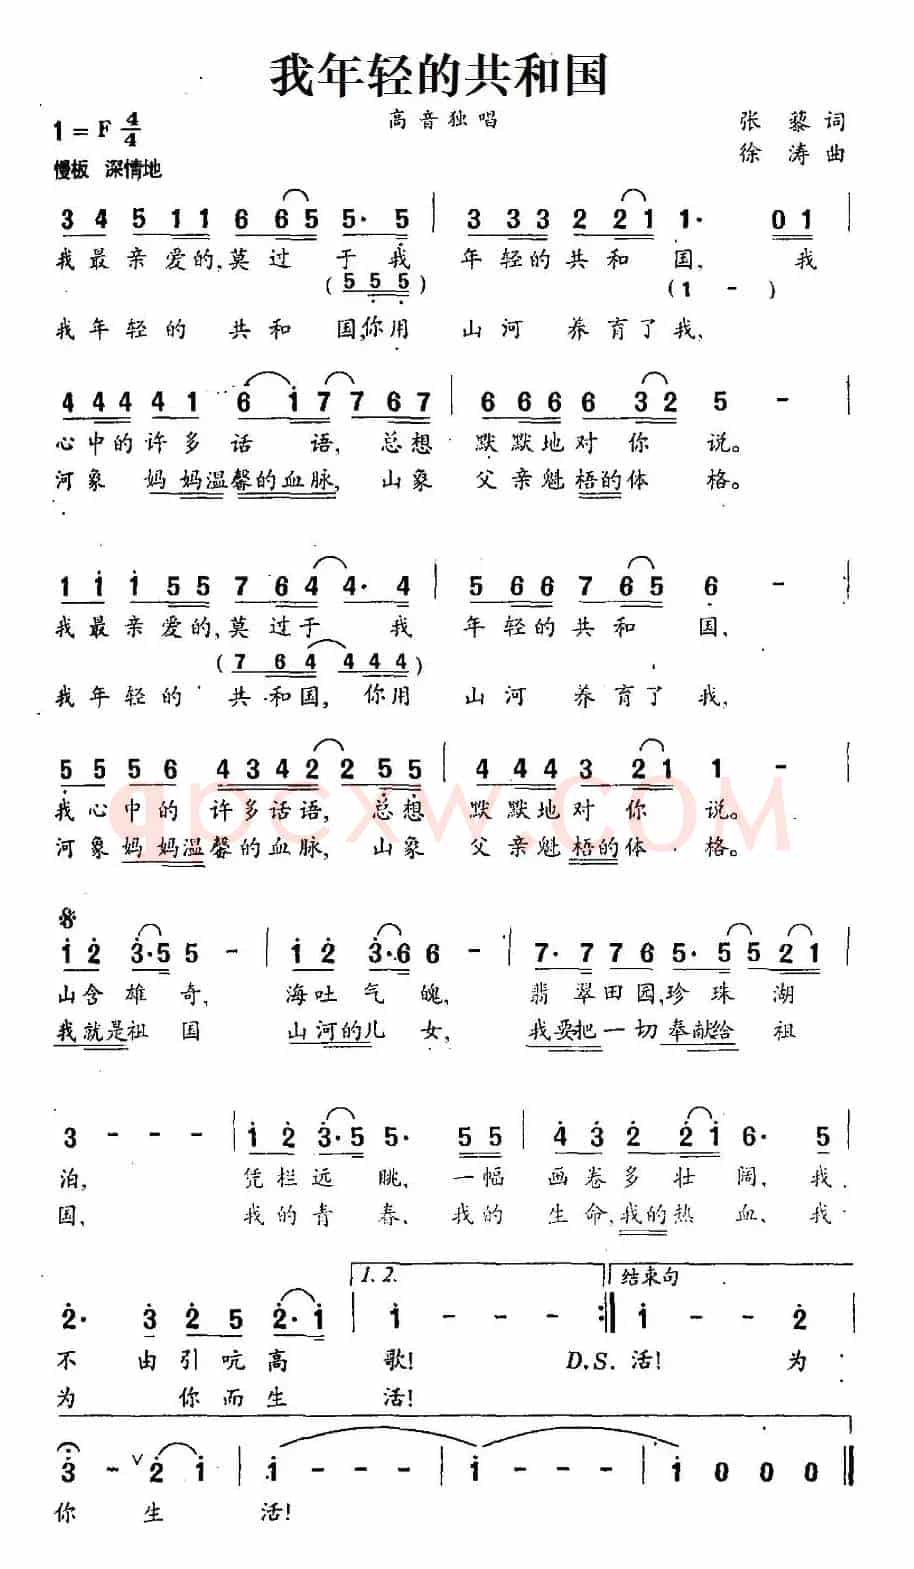 我年轻的共和国
高音独唱
1=F 4/4
张藜词
慢板 深情地
徐涛曲
3 4 5 1 1 6 6 5 5· 5 | 3 3 3 2 2 1 1· 0 1 |
我最亲爱的,莫过于我 年轻的共和国, 我
(5 5 5) (1 - )
我年轻的共和国,你用 山河养育了我,
4 4 4 4 1 6 1 7 7 6 7 | 6 6 6 6 3 2 5 - |
心中的许多话语,总想 默默地对你说。
河象妈妈温馨的血脉,山象 父亲魁梧的体格。
1 1 1 5 5 7 6 4 4· 4 | 5 6 6 7 6 5 6 - |
我最亲爱的,莫过于我 年轻的共和国,
(7 6 4 4 4 4)
我年轻的共和国,你用 山河养育了我,
5 5 5 6 4 3 4 2 2 5 5 | 4 4 4 3 2 1 1 - |
qpcxw.COM
我心中的许多话语,总想 默默地对你说。
河象妈妈温馨的血脉,山象 父亲魁梧的体格。
1 2 3·5 5 - | 1 2 3·6 6 - | 7· 7 7 6 5· 5 5 2 1 |
山含雄奇, 海吐气魄, 翡翠田园,珍珠湖
我就是祖国 山河的儿女, 我要把一切奉献给祖
3 - - - | 1 2 3·5 5· 5 5 | 4 3 2 2 1 6· 5 |
泊, 凭栏远眺,一幅 画卷多壮阔,我
国, 我的青春、我的 生命,我的热血、我
1. 2. 结束句
2· 3 2 5 2·1 | 1 - - - :| 1 - - 2 |
不由引吭高 歌! D.S.活! 为
为你而生 活!
3 - 2 1 | 1 - - - | 1 - - - | 1 0 0 0 ‖
你生 活!